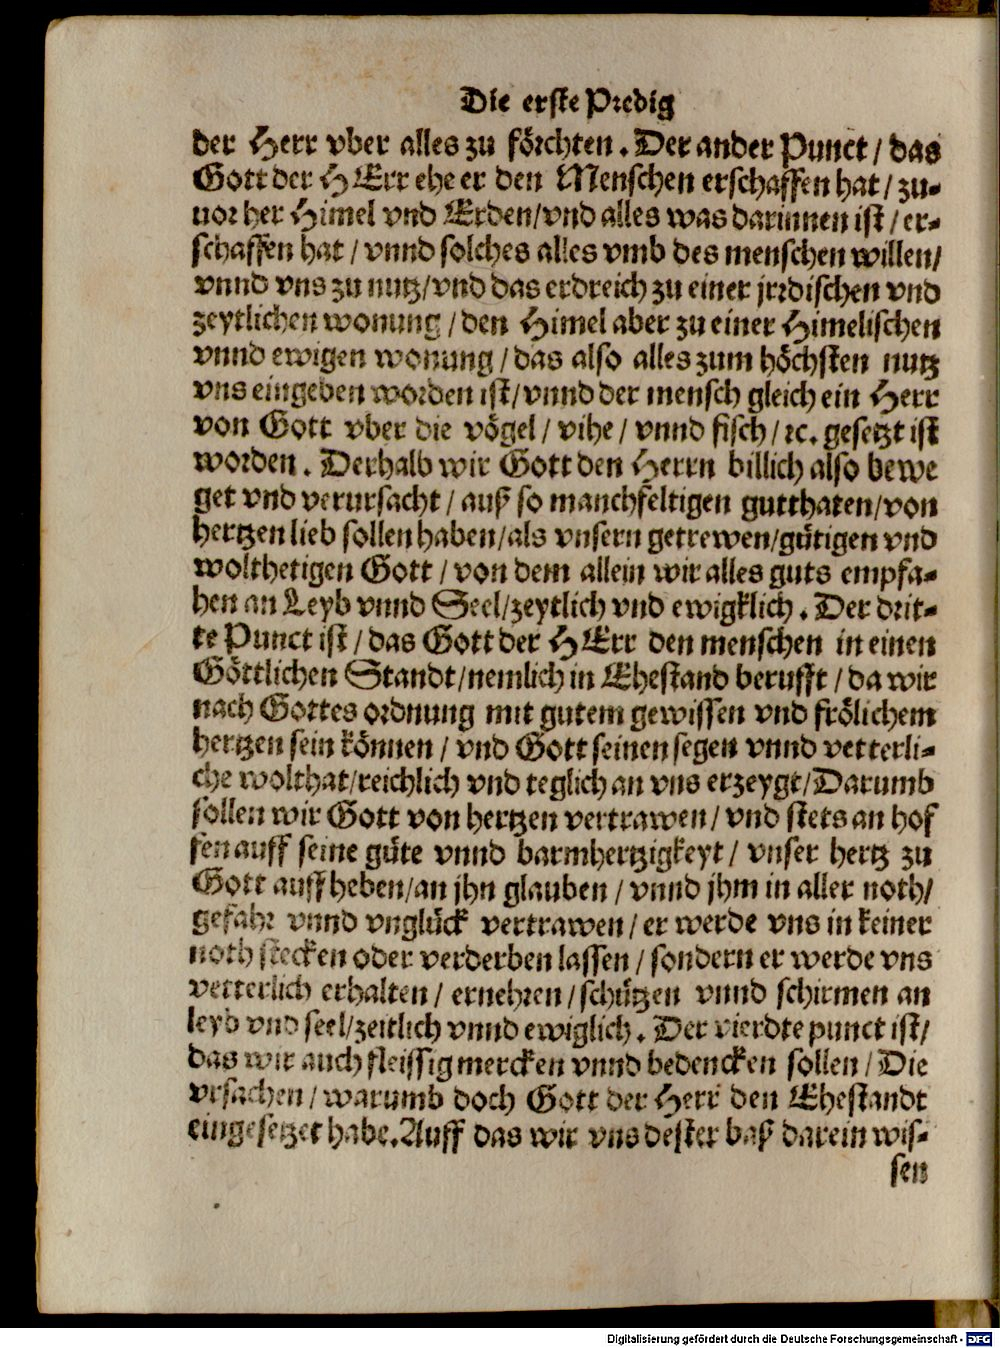 Die erste Predig
der Herr vber alles zu förchten. Der ander Punct / das
Gott der HErr ehe er den Menschen erschaffen hat / zu-
uor her Himel vnd Erden/vnd alles was darinnen ist / er-
schaffen hat / vnnd solches alles vmb des menschen willen/
vnnd vns zu nutz/vnd das erdreich zu einer jrrdischen vnd
zeytlichen wonung / den Himel aber zu einer Himelischen
vnnd ewigen wonung / das also alles zum höchsten nutz
vns eingeben worden ist/vnnd der mensch gleich ein Herr
von Gott vber die vögel / vihe / vnnd fisch / ꝛc. gesetzt ist
worden. Derhalb wir Gott den Herrn billich also bewe
get vnd verursacht / auß so manchfeltigen gutthaten/von
hertzen lieb sollen haben/als vnsern getrewen/gütigen vnd
wolthetigen Gott / von dem allein wir alles guts empfa-
hen an Leyb vnnd Seel/zeytlich vnd ewigklich. Der drit-
te Punct ist / das Gott der HErr den menschen in einen
Göttlichen Standt/nemlich in Ehestand berufft / da wir
nach Gottes ordnung mit gutem gewissen vnd frölichem
hertzen sein können / vnd Gott seinen segen vnnd vetterli-
che wolthat/reichlich vnd teglich an vns erzeygt/Darumb
sollen wir Gott von hertzen vertrawen/ vnd stets an hof
fen auff seine güte vnnd barmhertzigkeyt / vnser hertz zu
Gott auff heben/an jhn glauben / vnnd jhm in aller noth/
gefahr vnnd vnglück vertrawen / er werde vns in keiner
noth stecken oder verderben lassen / sondern er werde vns
vetterlich erhalten / ernehren / schützen vnnd schirmen an
leyb vnd seel/zeitlich vnnd ewiglich. Der vierdte punct ist/
das wir auch fleissig mercken vnnd bedencken sollen / Die
vrsachen / warumb doch Gott der Herr den Ehestandt
eingesetzet habe. Auff das wir vns dester baß darein wis-
sen
Digitalisierung gefördert durch die Deutsche Forschungsgemeinschaft - DFG